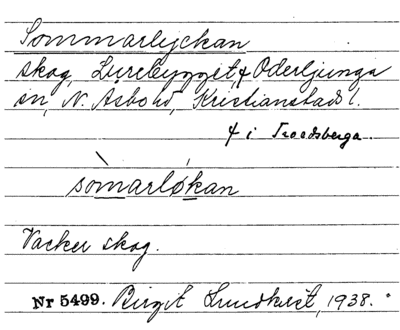 Sommarlyckan
skog, Lurebygget,⨍ Oderljunga
sn, N. Åsbo hd, Kristianstads l.
⨍ i Troedsberga.
sòmarløkan
Vacker skog.
Nr 5499. Birgit Lundkvist, 1938.